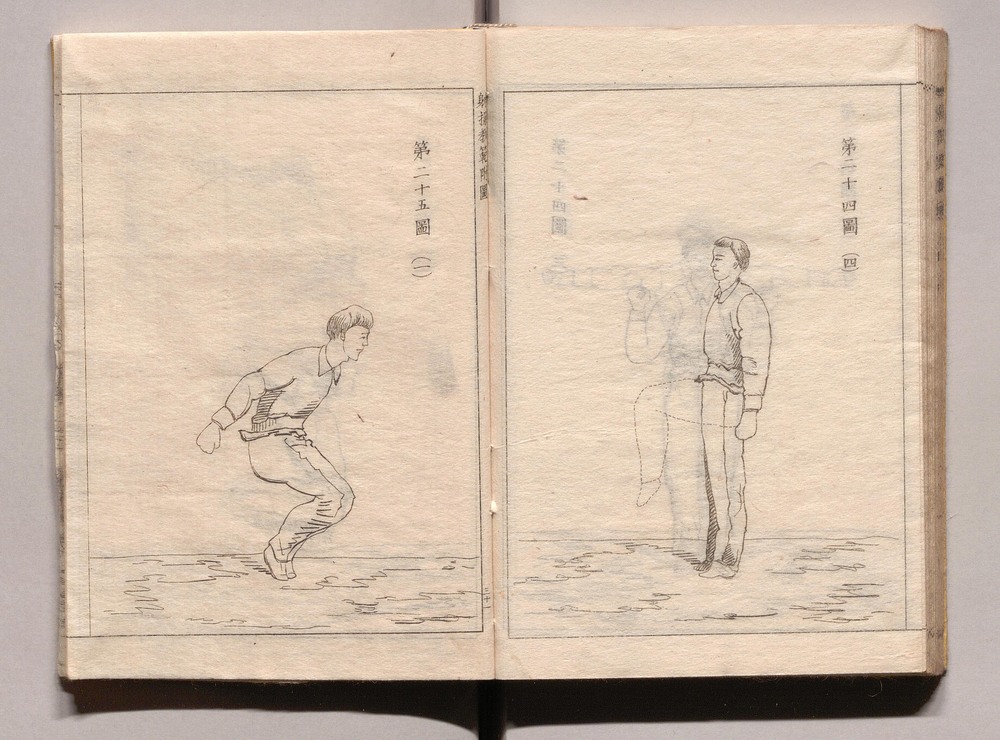 第二十四圖 (四)
躰操教範附圖
第二十五圖 (一)